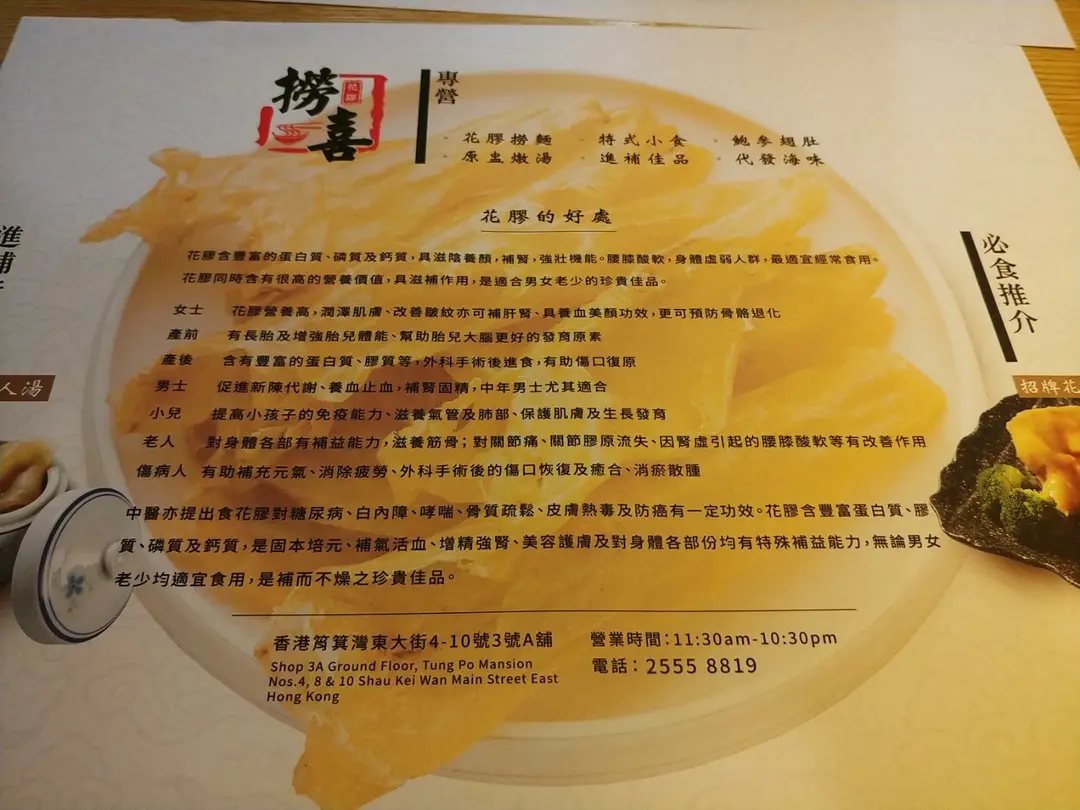 撈喜
花膠
專營
· 花膠撈麵 · 特式小食 · 鮑參翅肚
· 原盅燉湯 · 進補佳品 · 代發海味
花膠的好處
花膠含豐富的蛋白質、磷質及鈣質,具滋陰養顏,補腎,強壯機能。腰膝酸軟,身體虛弱人群,最適宜經常食用。
花膠同時含有很高的營養價值,具滋補作用,是適合男女老少的珍貴佳品。
女士 花膠營養高,潤澤肌膚、改善皺紋亦可補肝腎、具養血美顏功效,更可預防骨骼退化
產前 有長胎及增強胎兒體能、幫助胎兒大腦更好的發育原素
產後 含有豐富的蛋白質、膠質等,外科手術後進食,有助傷口復原
男士 促進新陳代謝、養血止血,補腎固精,中年男士尤其適合
小兒 提高小孩子的免疫能力、滋養氣管及肺部、保護肌膚及生長發育
老人 對身體各部有補益能力,滋養筋骨;對關節痛、關節膠原流失、因腎虛引起的腰膝酸軟等有改善作用
傷病人 有助補充元氣、消除疲勞、外科手術後的傷口恢復及癒合、消瘀散腫
中醫亦提出食花膠對糖尿病、白內障、哮喘、骨質疏鬆、皮膚熱毒及防癌有一定功效。花膠含豐富蛋白質、膠
質、磷質及鈣質,是固本培元、補氣活血、增精強腎、美容護膚及對身體各部份均有特殊補益能力,無論男女
老少均適宜食用,是補而不燥之珍貴佳品。
香港筲箕灣東大街4-10號3號A舖
Shop 3A Ground Floor, Tung Po Mansion
Nos.4, 8 & 10 Shau Kei Wan Main Street East
Hong Kong
營業時間:11:30am-10:30pm
電話:2555 8819
進補
人湯
必食推介
招牌花